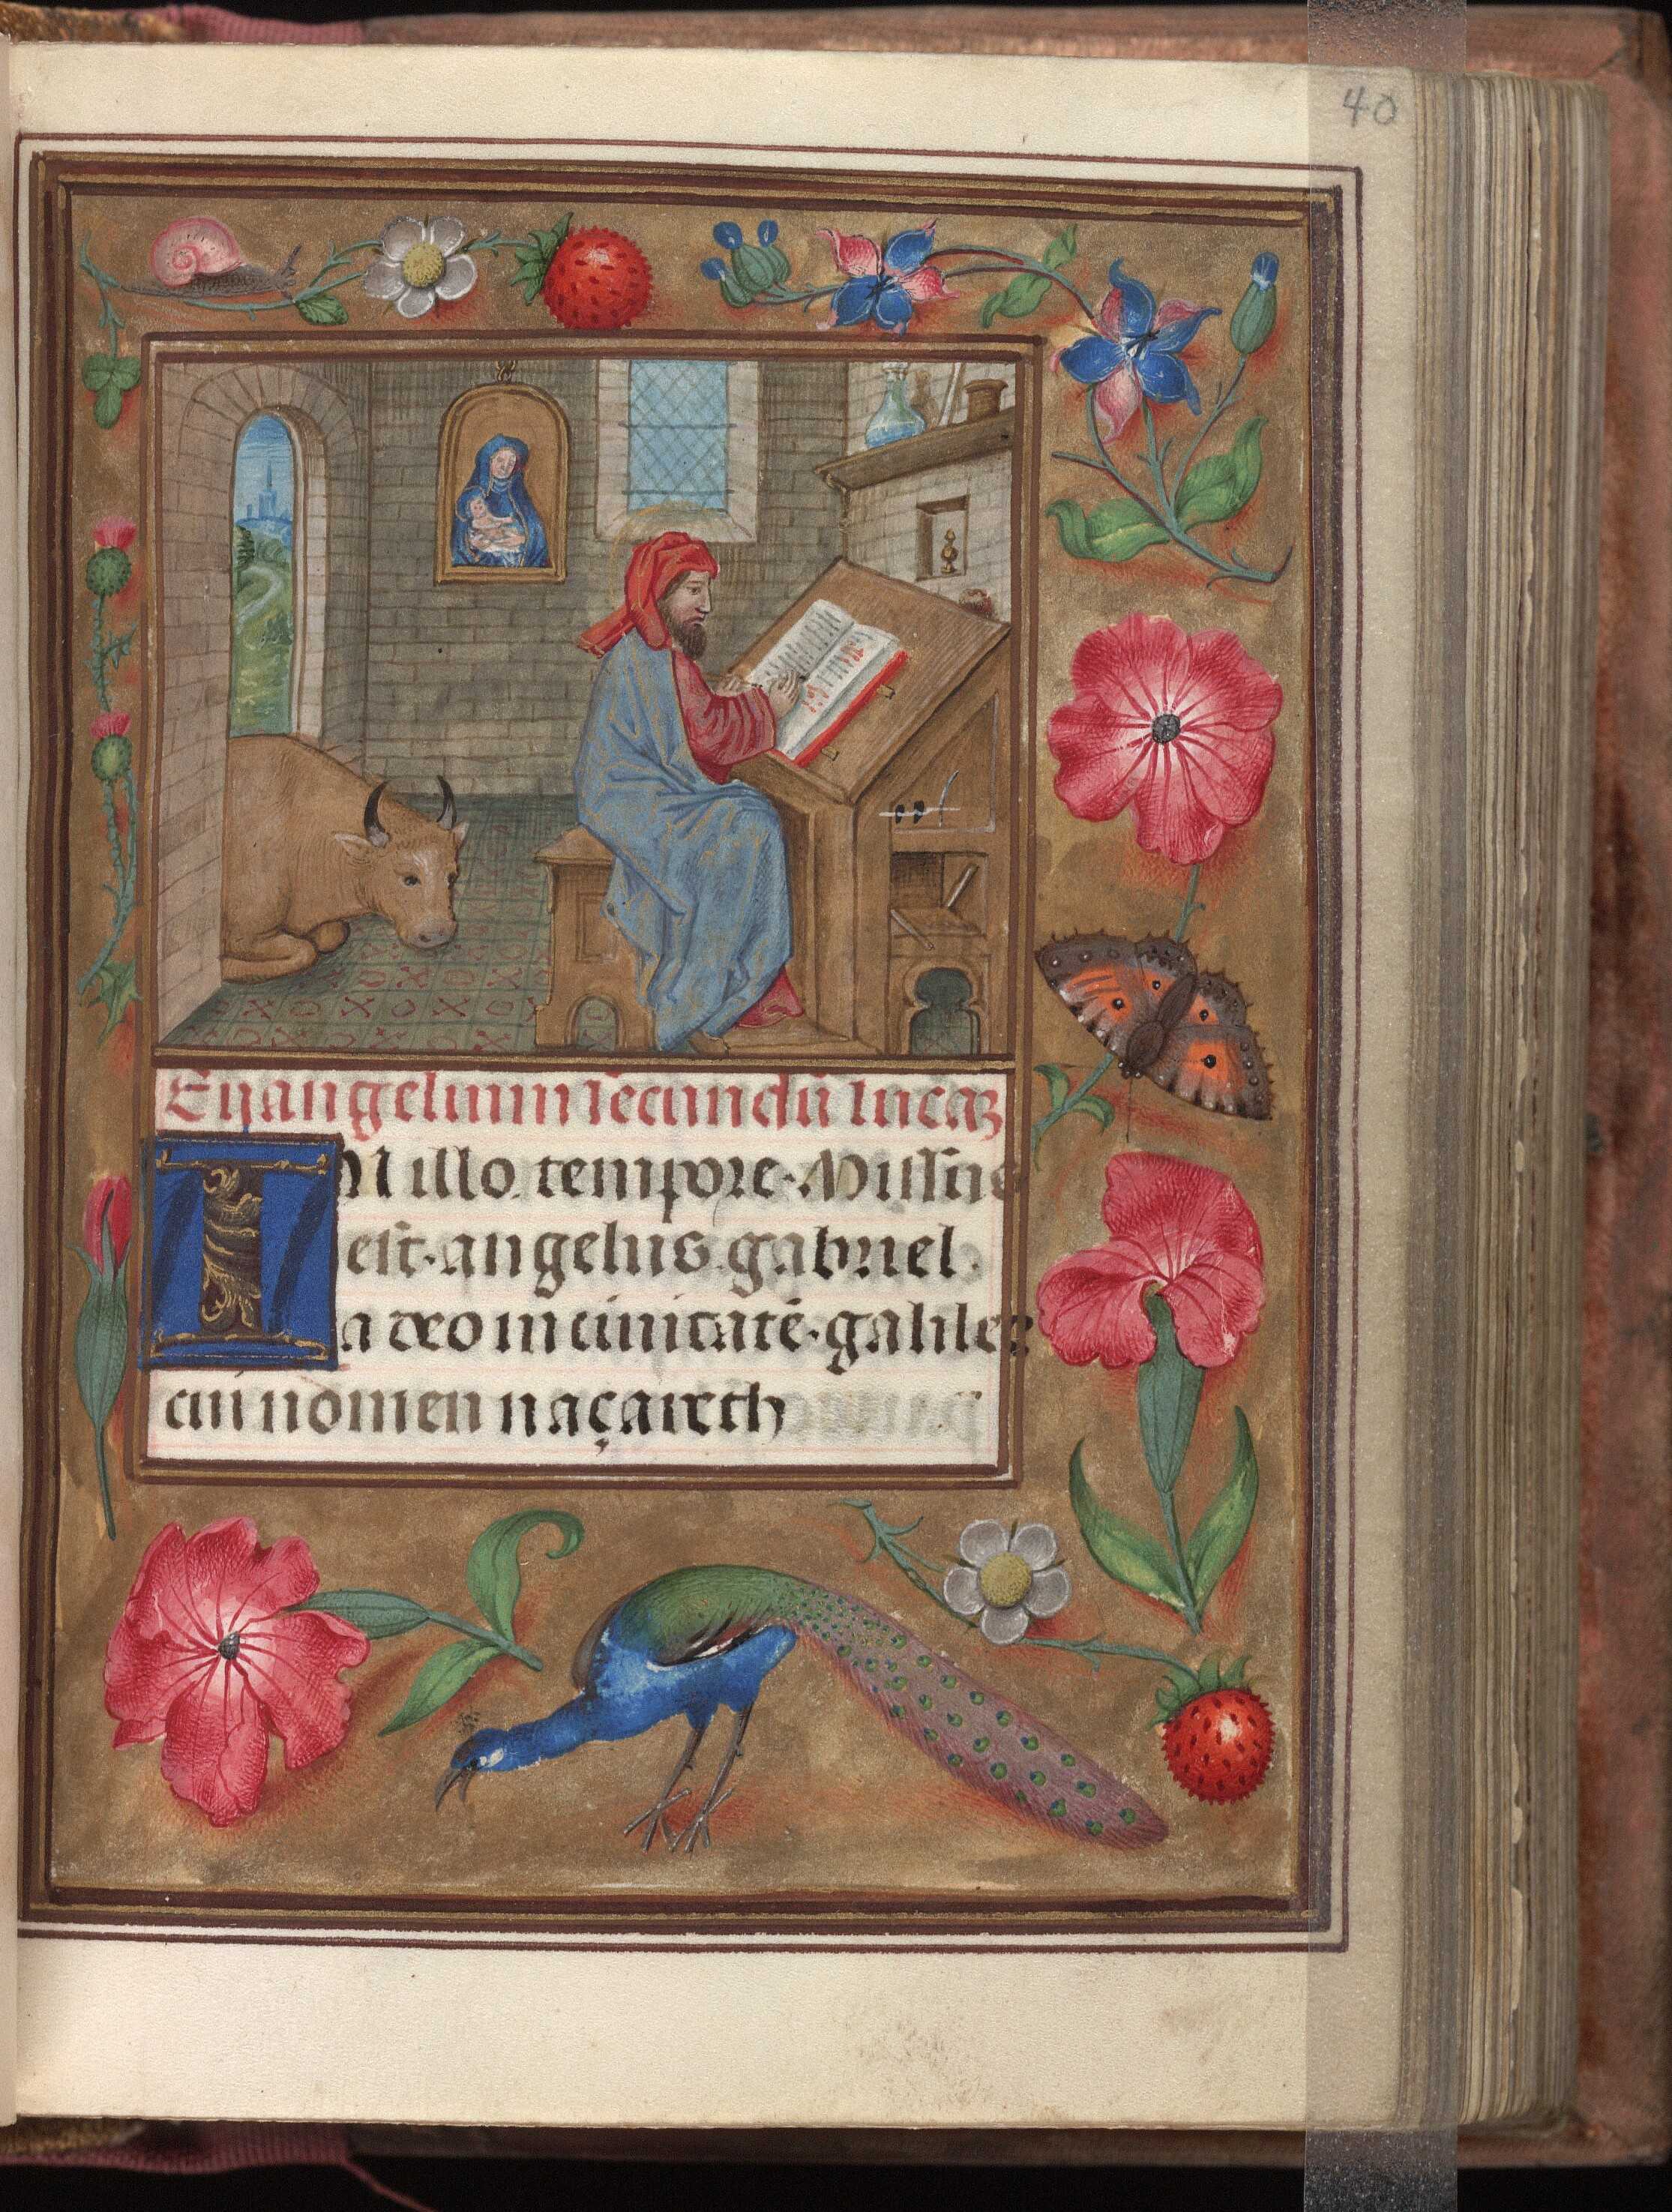 40
Euangelium secundū lucaꝫ
IN illo tempore. Missus
est. angelus. gabriel.
a deo in ciuitatē. galilee
cui nomen naçareth